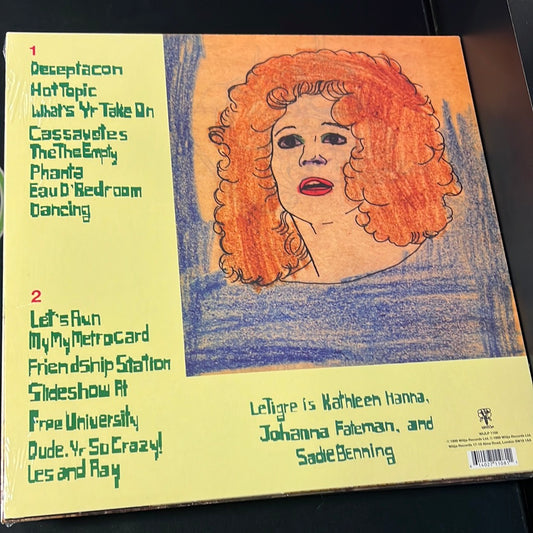 1
Deceptacon
Hot Topic
What's Yr Take On
Cassavetes
The The Empty
Phanta
Eau D'Bedroom
Dancing
2
Let's Run
My My Metrocard
Friendship Station
Slideshow At
Free University
Dude. Yr So Crazy!
Les and Ray
LeTigre is Kathleen Hanna,
Johanna Fateman, and
Sadie Benning